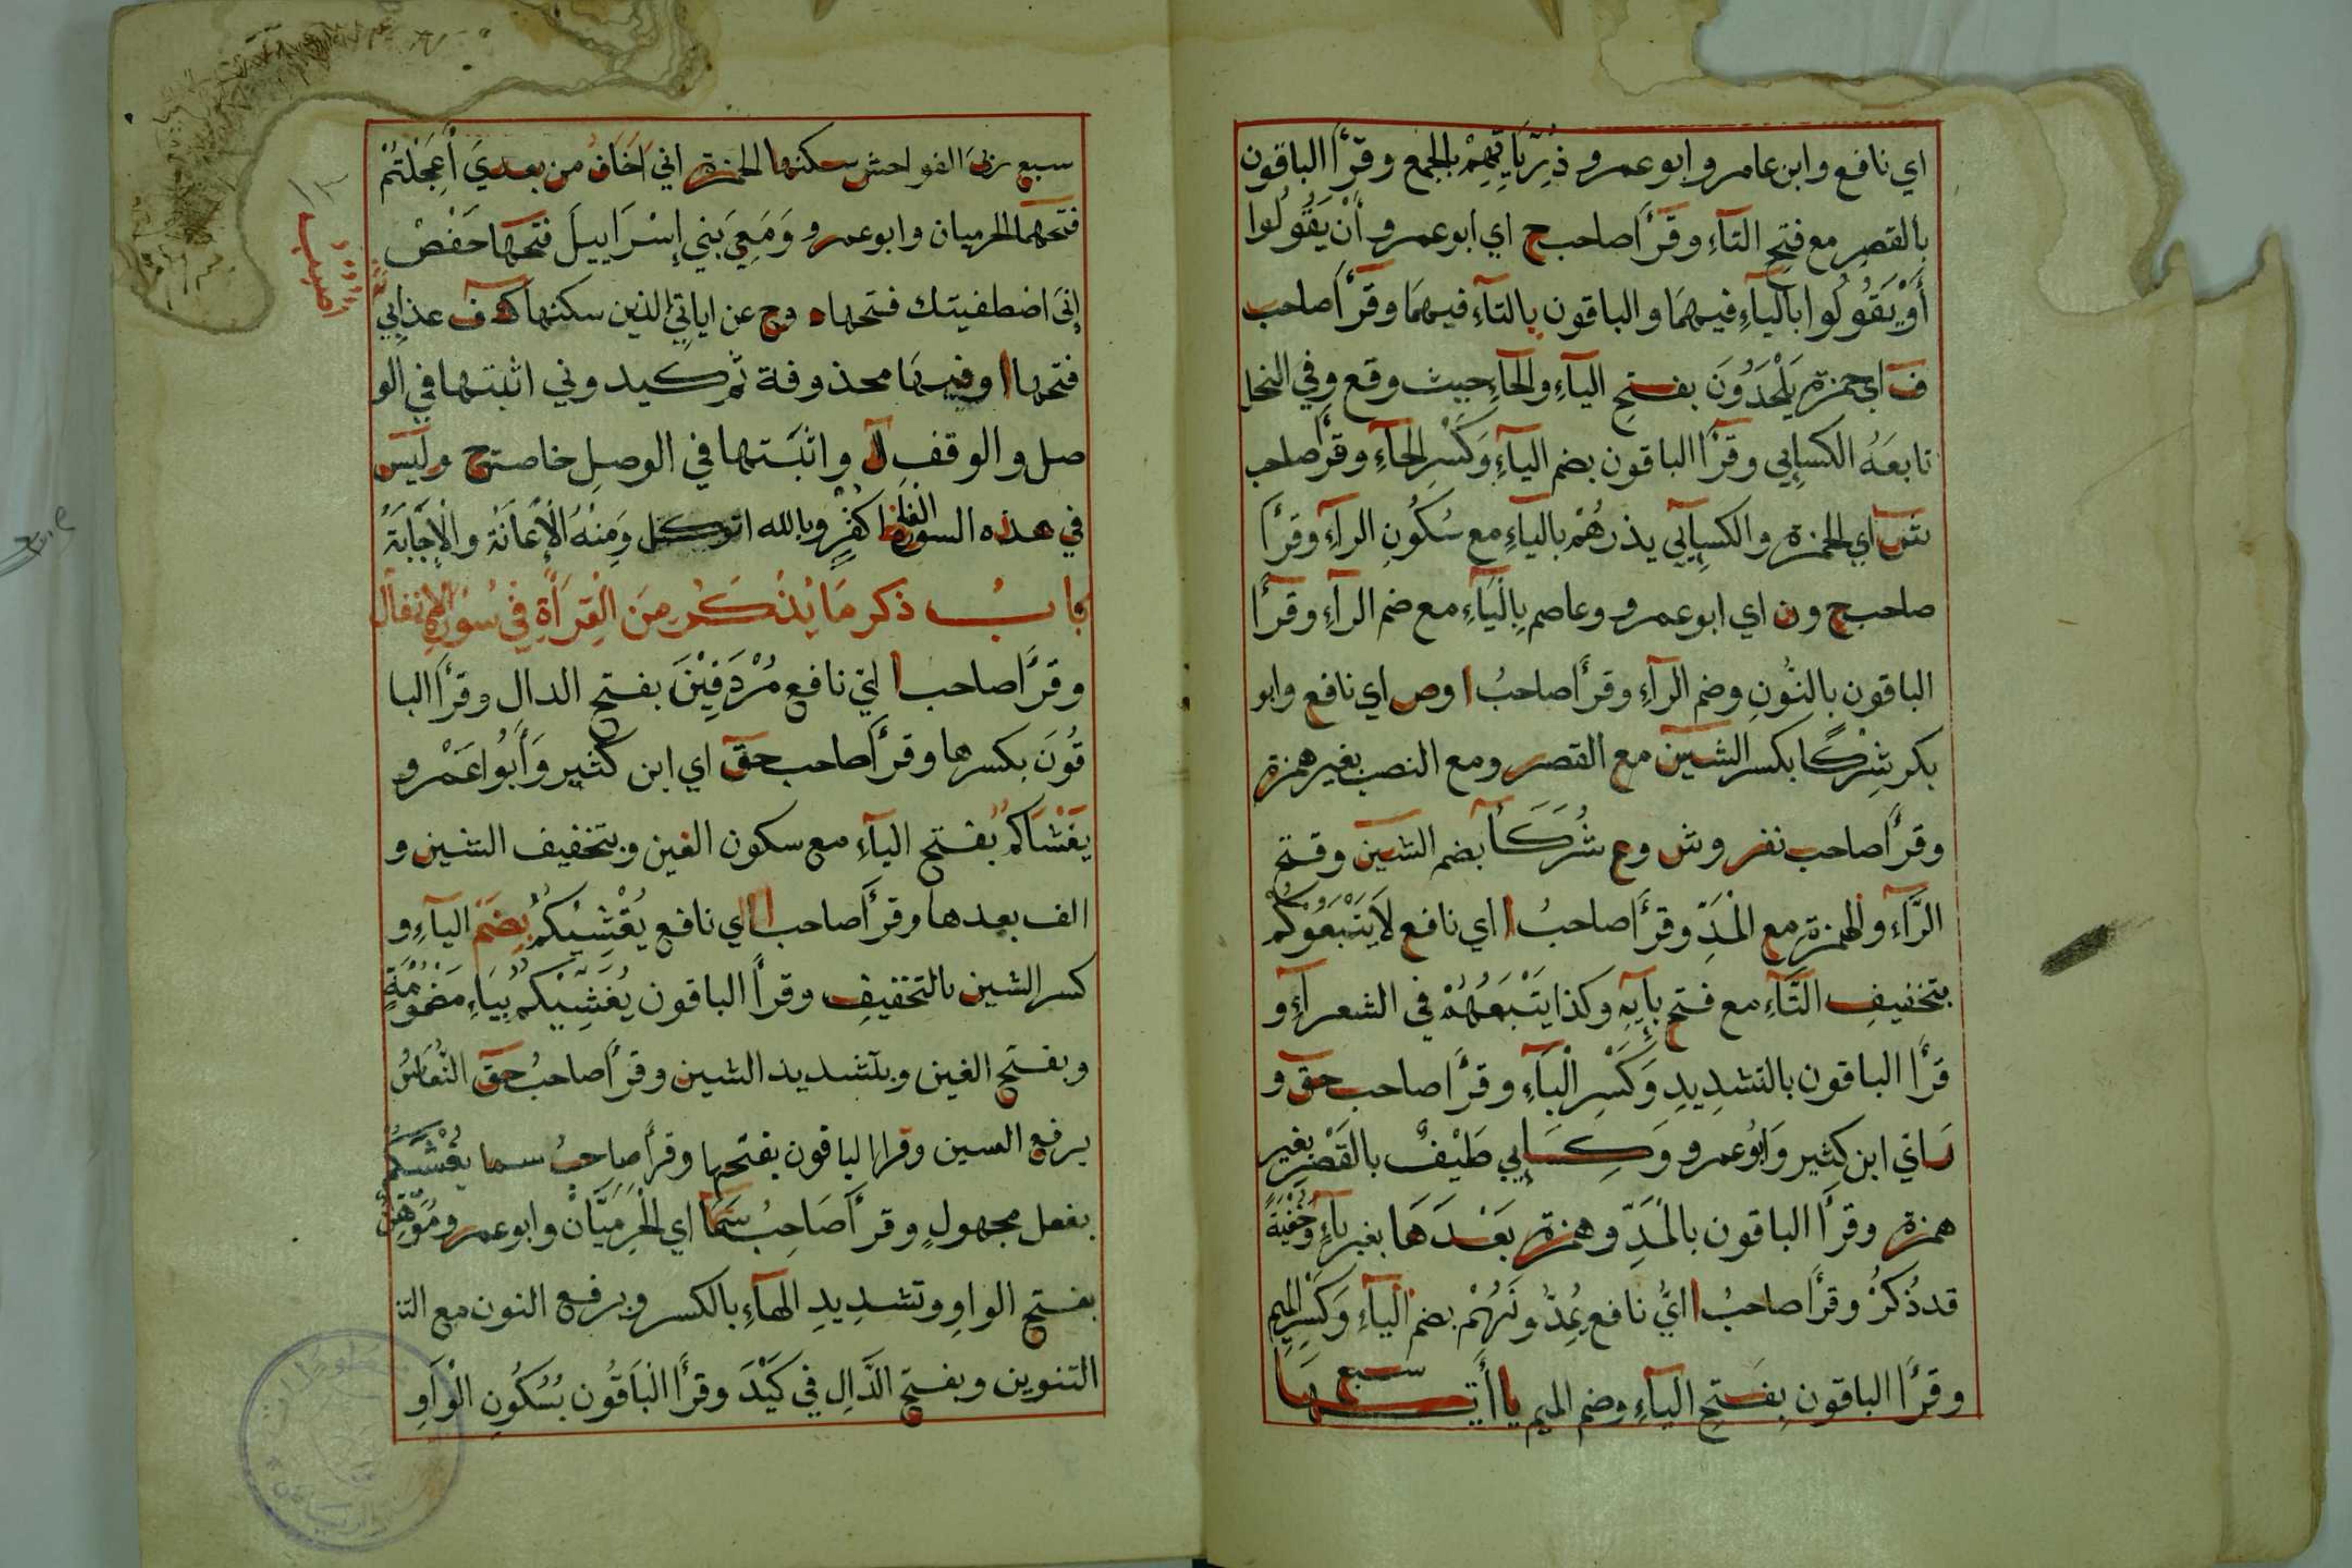 اي نافع وابن عامر وابو عمرو ذُرِّيَّاتِهِمْ بالجمع وقرأ الباقون
بالقصر مع فتح التآء وقرأ صاحب ح اي ابو عمرو أَنْ يَقُولُوا
أَوْ يَقُولُوا بالياءِ فيهمَا والباقون بالتآء فيهمَا وقرأ صاحب
ف اي حمزة يَلْحَدُونَ بفتح اليآءِ والحآءِ حيث وقع وفي النحل
تابعَهُ الكسايي وقرأ الباقون بضم اليآءِ وَكَسْرِ الحآءِ وقرأ صاحب
اي الحمزة والكسايي يذرهُمْ بالياءِ مع سُكُونِ الرآءِ وقرأ
صاحب ح ون اي ابو عمرو وعاصم بِالْيَآءِ مع ضم الرآءِ وقرأ
الباقون بالنُّونِ وضم الرآءِ وقرأ صاحبُ ا وص اي نافع وابو
بكر شِرْكًا بكسر الشين مع القصر ومع النصب بغير همزة
وقرأ صاحب نفر وش وع شُرَكَآءَ بضم الشين وفتح
الرَّآءِ والهمزة مع الْمَدِّ وقرأ صاحبُ ا اي نافع لاَ يَتْبَعُوكُمْ
بتخفيف التَّآءِ مع فتح بآيِهِ وكذا يَتْبَعُهُمْ في الشعرآءِ و
قرأ الباقون بالتشدِيدِ وَكَسْرِ الْبَآءِ وقرأ صاحب حق و
ر اي ابن كثير وَابُو عمرو وَكِسَايي طَيْفٌ بالقَصْرِ بغير
همزة وقرأ الباقون بالْمَدِّ وهمزة بَعْدَهَا بغير ياءٍ وَخُفْيَةً
قد ذُكِرُ وقرأ صاحبُ ا ايُّ نافع يُمِدُّونَهُمْ بضم اليآءِ وَكَسْرِ الميم
وقرأ الباقون بِفَتحِ اليآءِ وضم الميم ياأيتها سبع
سبع ربى الفواحش سكنها الحمزة اني اَخَافُ من بعدِيَ أَعَجِلْتُمْ
فتحهما الحرميان وابو عمرو وَمَعِيَ بَنِي إِسْرَايِيلَ فتحها حَفْصٌ
إنيَ اصطفيتك فتحها وح عن اياتِي الذين سكنها ك ف عذابِي
فتحها ا وفيها محذوفة ثم كيدوني اثبتها في الو
صل والوقف ل واثبَتها في الوصلِ خاصة ح وليس
في هذه السورة اكفر وبالله اتوكل وَمِنْهُ الْإِعَانَة والْإِجَابَةُ
بابُ ذكر مَا يُذْكَرُ مِنَ الْقِرَأَةِ فِي سُورَة الانفال
وقرأ صاحب ا اي نافع مُرْدَفِيْنَ بفتح الدال وقرأ البا
قُونَ بكسرها وقرأ صاحب حق اي ابن كثير وَأَبُوا عَمْرو
يَغْشَاكُمُ بفتح اليآءِ مع سكون الغين وبتخفيف الشين و
الف بعدها وقرأ صاحب ا اي نافع يُغْشِيْكُمُ بِضَمِّ اليآءِ و
كسر الشين بالتخفيفِ وقرأ الباقون يُغَشِّيْكُمُ بِيَاءٍ مَضْمُوْمَةٍ
وبفتح الغين وبتشديد الشين وقرأ صاحبُ حق النُّعَاسُ
برفع السين وقرا الباقون بفتحها وقرأ صاحبُ سما
بفعل مجهولٍ وقرأ صَاحِبُ سَمَا اي الْحَرمِيَّان وابو عمرو مُوَهِّنٌ
بفتح الواوِ وتشدِيدِ الهآءِ بالكسر وبرفع النون مع الت
التنوين وبفتح الدَّالِ في كَيْدَ وقرأ الْبَاقُون بسُكُونِ الْوَاوِ